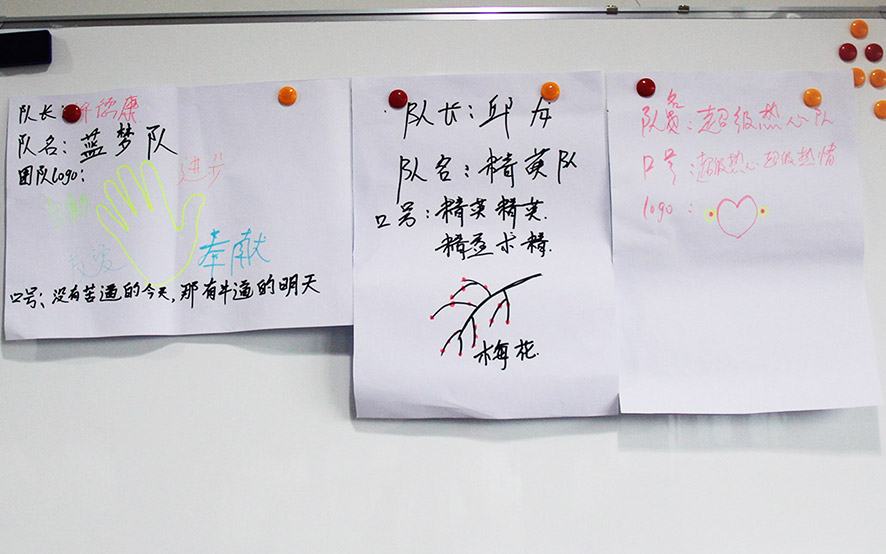 队长：康
队名：蓝梦队
团队logo：
进步
奉献
口号：没有苦逼的今天，那有牛逼的明天
队长：邱
队名：精英队
口号：精英精英.
精益求精.
梅花.
名
队员：超级热心队
口号：超级热心 超级热情
logo：